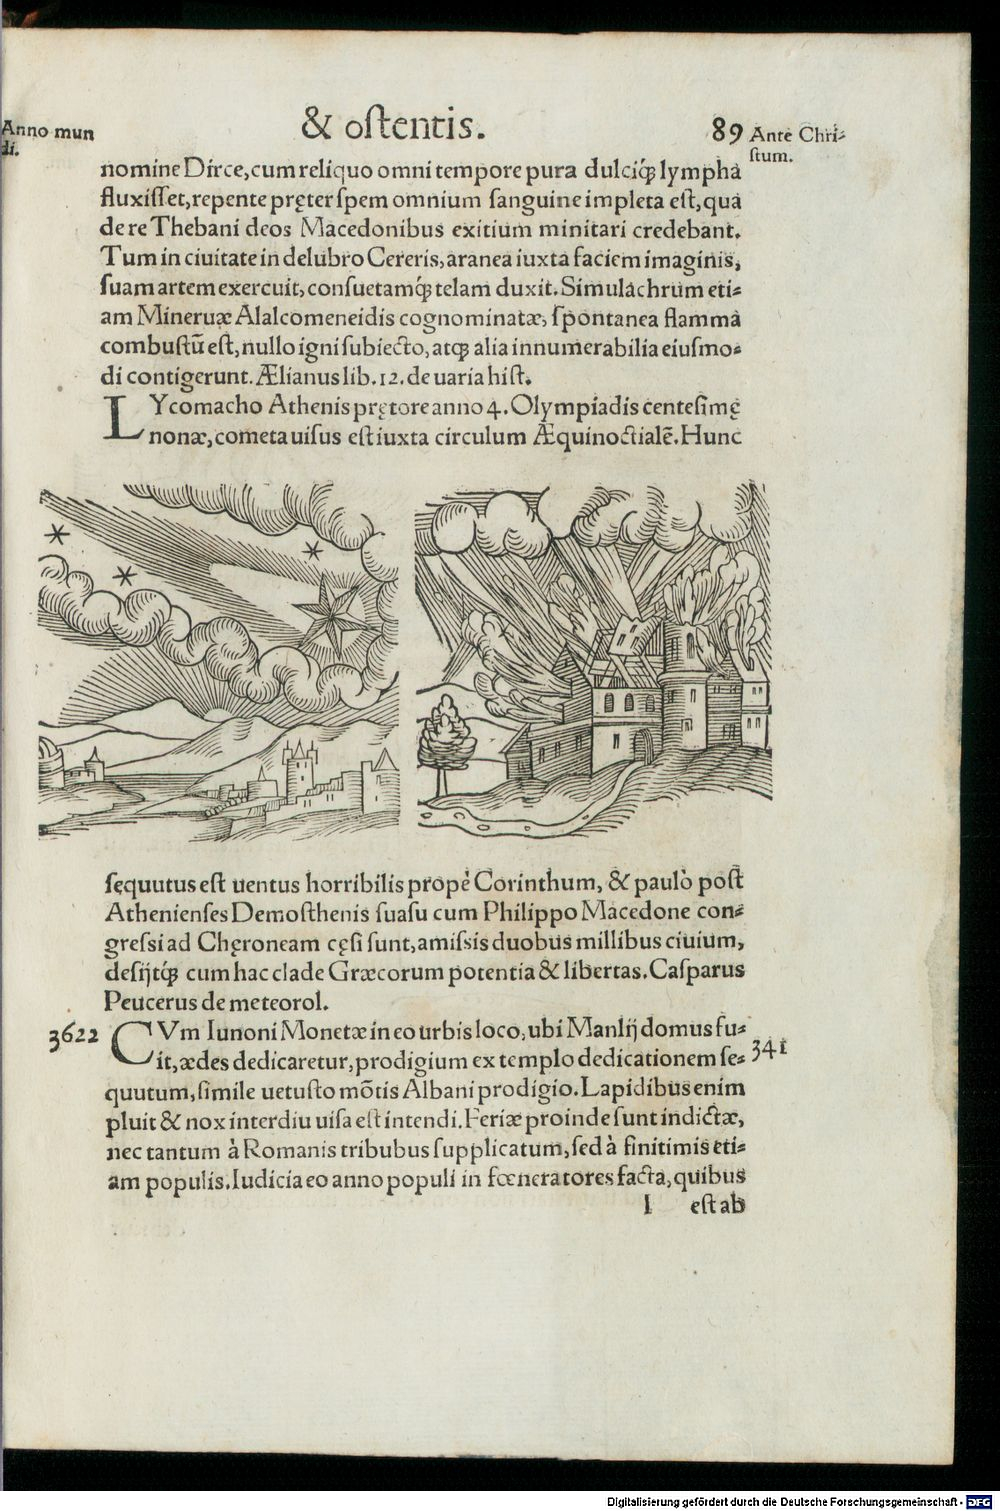 Anno mun
di.
& ostentis.
89 Ante Chri-
stum.
nomine Dirce, cum reliquo omni tempore pura dulciq́; lympha
fluxisset, repente pręter spem omnium sanguine impleta est, qua
de re Thebani deos Macedonibus exitium minitari credebant.
Tum in ciuitate in delubro Cereris, aranea iuxta faciem imaginis,
suam artem exercuit, consuetamq́; telam duxit. Simulachrum eti-
am Mineruæ Alalcomeneidis cognominatæ, spontanea flamma
combustũ est, nullo igni subiecto, atq; alia innumerabilia eiusmo-
di contigerunt. Ælianus lib. 12. de uaria hist.
LYcomacho Athenis pręto re anno 4. Olympiadis centesimę
nonæ, cometa uisus est iuxta circulum Æquinoctialẽ. Hunc
sęquutus est uentus horribilis propè Corinthum, & paulò post
Athenienses Demosthenis suasu cum Philippo Macedone con-
gressi ad Chęroneam cęsi sunt, amissis duobus millibus ciuium,
desijtq́; cum hac clade Græcorum potentia & libertas. Casparus
Peucerus de meteorol.
3622 CVm Iunoni Monetæ in eo urbis loco, ubi Manlij domus fu-
it, ædes dedicaretur, prodigium extemplo dedicationem se- 341
quutum, simile uetusto mõtis Albani prodigio. Lapidibus enim
pluit & nox interdiu uisa est intendi. Feriæ proinde sunt indictæ,
nec tantum à Romanis tribubus supplicatum, sed à finitimis eti-
am populis. Iudicia eo anno populi in fœneratores facta, quibus
I est ab
Digitalisierung gefördert durch die Deutsche Forschungsgemeinschaft - DFG